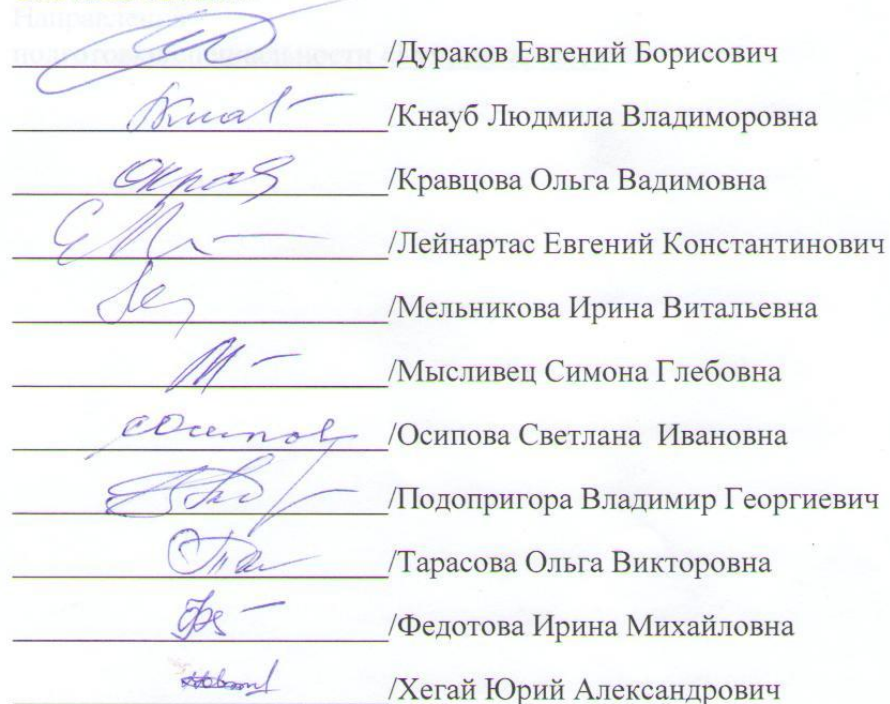 /Дураков Евгений Борисович
/Кнауб Людмила Владиморовна
/Кравцова Ольга Вадимовна
/Лейнартас Евгений Константинович
/Мельникова Ирина Витальевна
/Мысливец Симона Глебовна
/Осипова Светлана Ивановна
/Подопригора Владимир Георгиевич
/Тарасова Ольга Викторовна
/Федотова Ирина Михайловна
/Хегай Юрий Александрович